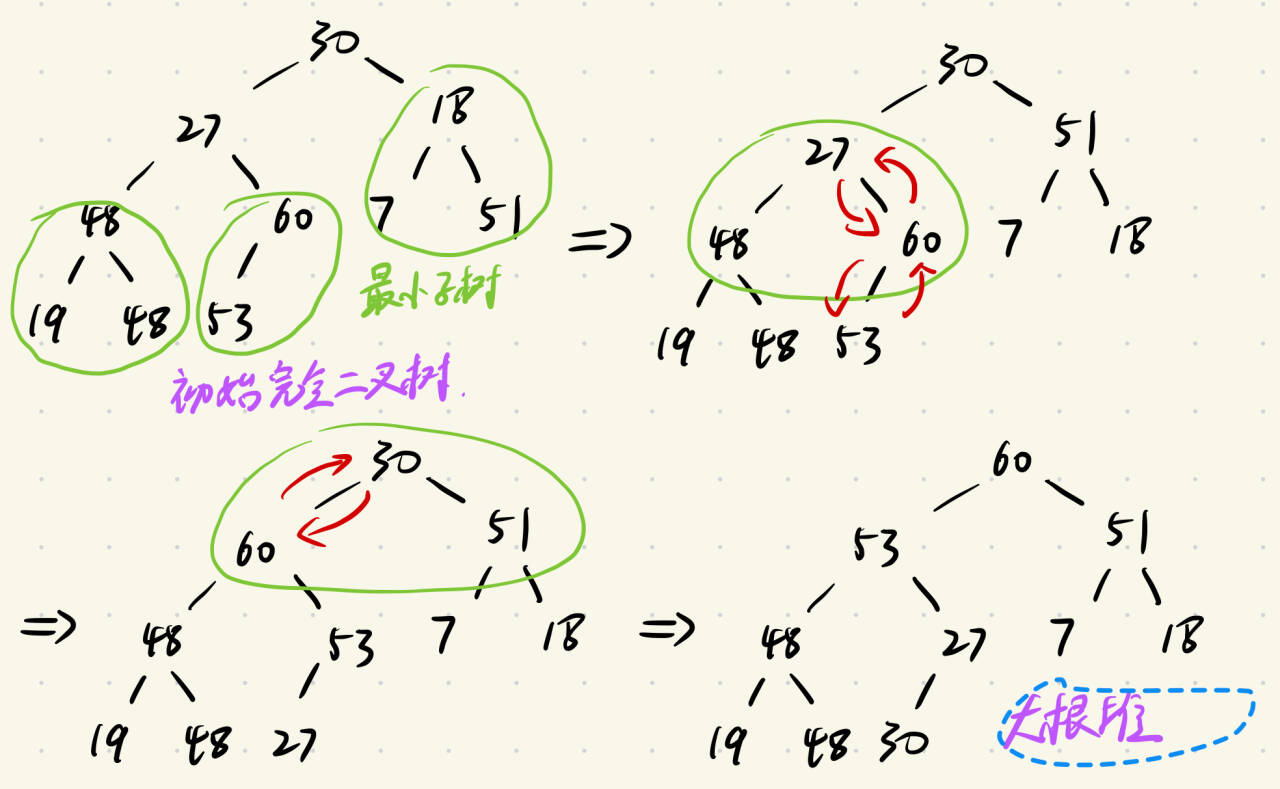 30
27 18
48 60 7 51
19 48 53
最小子树
初始完全二叉树.
=>
30
27 51
48 60 7 18
19 48 53
=>
30
60 51
48 53 7 18
19 48 27
=>
60
53 51
48 27 7 18
19 48 30
大根堆